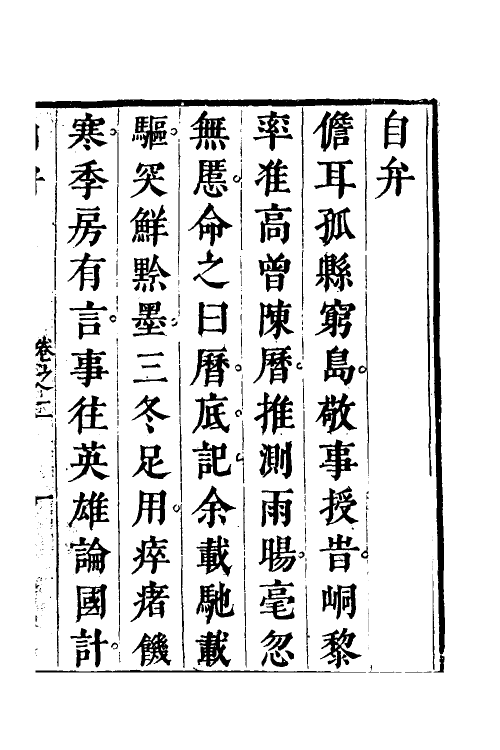 自弁
儋耳孤縣窮島。敬事授旹。峒黎
率准高曾陳曆。推測雨暘。毫忽
無慝。命之曰曆底記。余載馳載
驅。突鮮黔墨。三冬足用。瘁瘏饑
寒。季房有言。事往英雄論國計。
卷之十二